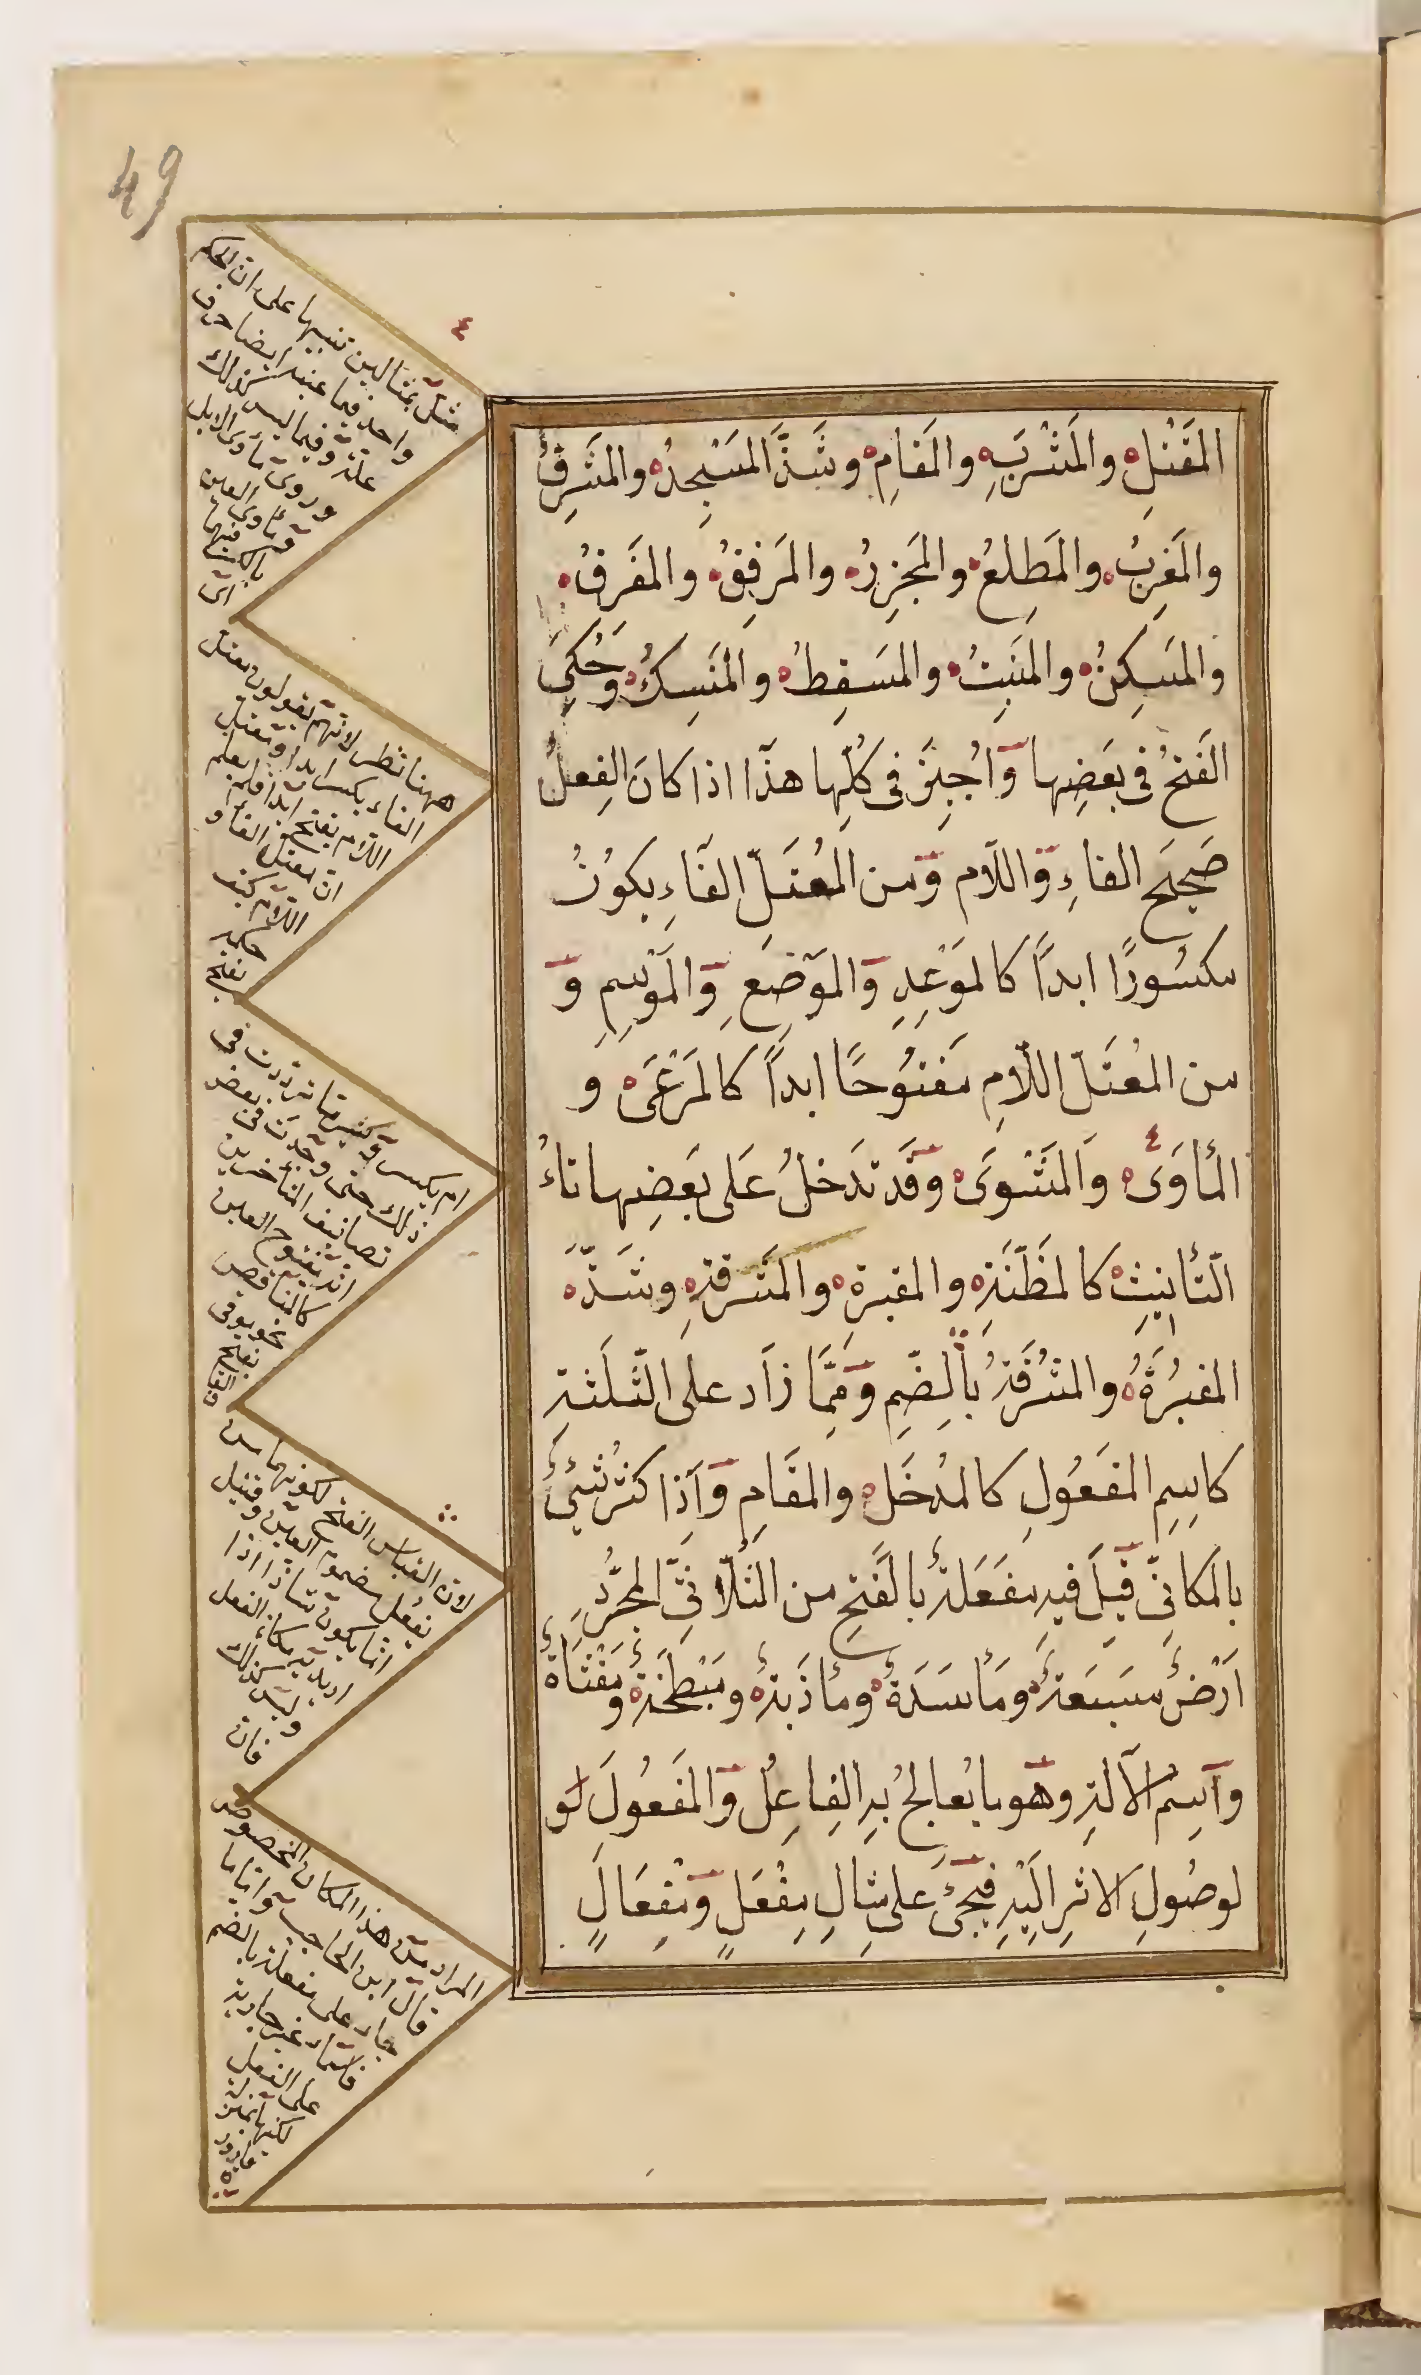 49
المَقْتَلِ والمَشْرَبِ والمَقامِ وشَذَّ المَسْجِدُ والمَشْرِقُ
والمَغْرِبُ والمَطْلِعُ والمَجْزِرُ والمَرْفِقُ والمَفْرِقُ
والمَسْكِنُ والمَنْبِتُ والمَسْقِطُ والمَنْسِكُ وَحُكِىَ
الفَتْحُ فى بَعْضِها وَاُجِيْزَ فى كُلِّها هذَا اذا كانَ الفِعْلُ
صَحِيْحَ الفاءِ وَاللّام وَمن المُعْتَلِّ الفَاءِ يكوْنُ
مكسُورًا ابداً كالمَوْعِدِ وَالمَوْضِعِ وَالمَوْسِمِ وَ
من المُعْتَلّ اللّامِ مَفتوُحًا ابداً كالمَرْعَى و
المأوَى وَالمَثْوَى وقَد تَدخلُ عَلى بَعضِها تاءُ
التّأنِيثِ كالمَظَنَّةِ والمقبرةِ والمَشرَقةِ وشَذَّ
المقبُرَةُ والمَشرُقَةُ بالضّمِ وَمِمَّا زَاد على الثّلٰثةِ
كاسِمِ المفعُولِ كالمُدخَلِ والمقَامِ وَاِذا كثُرَ الشَّئُ
بالمَكانِ قيلَ فيهِ مفعَلةٌ بالفَتحِ من الثّلاثىِّ المجَرَّدِ
ارْضٌ مسبَعَةٌ ومَأسَدَةٌ ومأذَبةٌ ومَبْطَخَةٌ ومَقْثَأةٌ
وَاسِمُ الآلَةِ وهُو ما يُعالِجُ بِهِ الفاعِلُ وَالمفعُولَ لو
لوصُولِ الاثرِ اِلَيْهِ فَيجئُ على مِثالِ مِفْعَلٍ وَمِفعَالٍ
مثّل بمثالين تنبيها على ان الحكم
واحد فيما عينه ايضا حرف
علة وفيما ليس كذلك
وروى مأوى الابل
ومأوى العين
بالكسر فيهما
ههنا نظر لانهم يقولون معتل
الفاء يكسر ابدا ومعتل
اللام يفتح ابدا فلم يعلم
ان معتل الفاء و
اللام كيف
حكمه
يفتح
ام يكسر وكثيرا ما ترددت فى
ذلك حتى وجدت فى بعض
تصانيف المتأخرين
انه مفتوح العين
كالناقص
نحو موقى
بفتح
القاف
لان القياس الفتح لكونهما من
يفعل مضموم العين وقيل
انما يكون شاذا اذا
اريد به مكان الفعل
وليس كذلك
فان
المراد من هذا المكان المخصوص
قال ابن الحاجب واما ما
جاء على مفعلة بالضم
فاسماء غير جارية
على الفعل
لكنها بمنزلة
قارورة